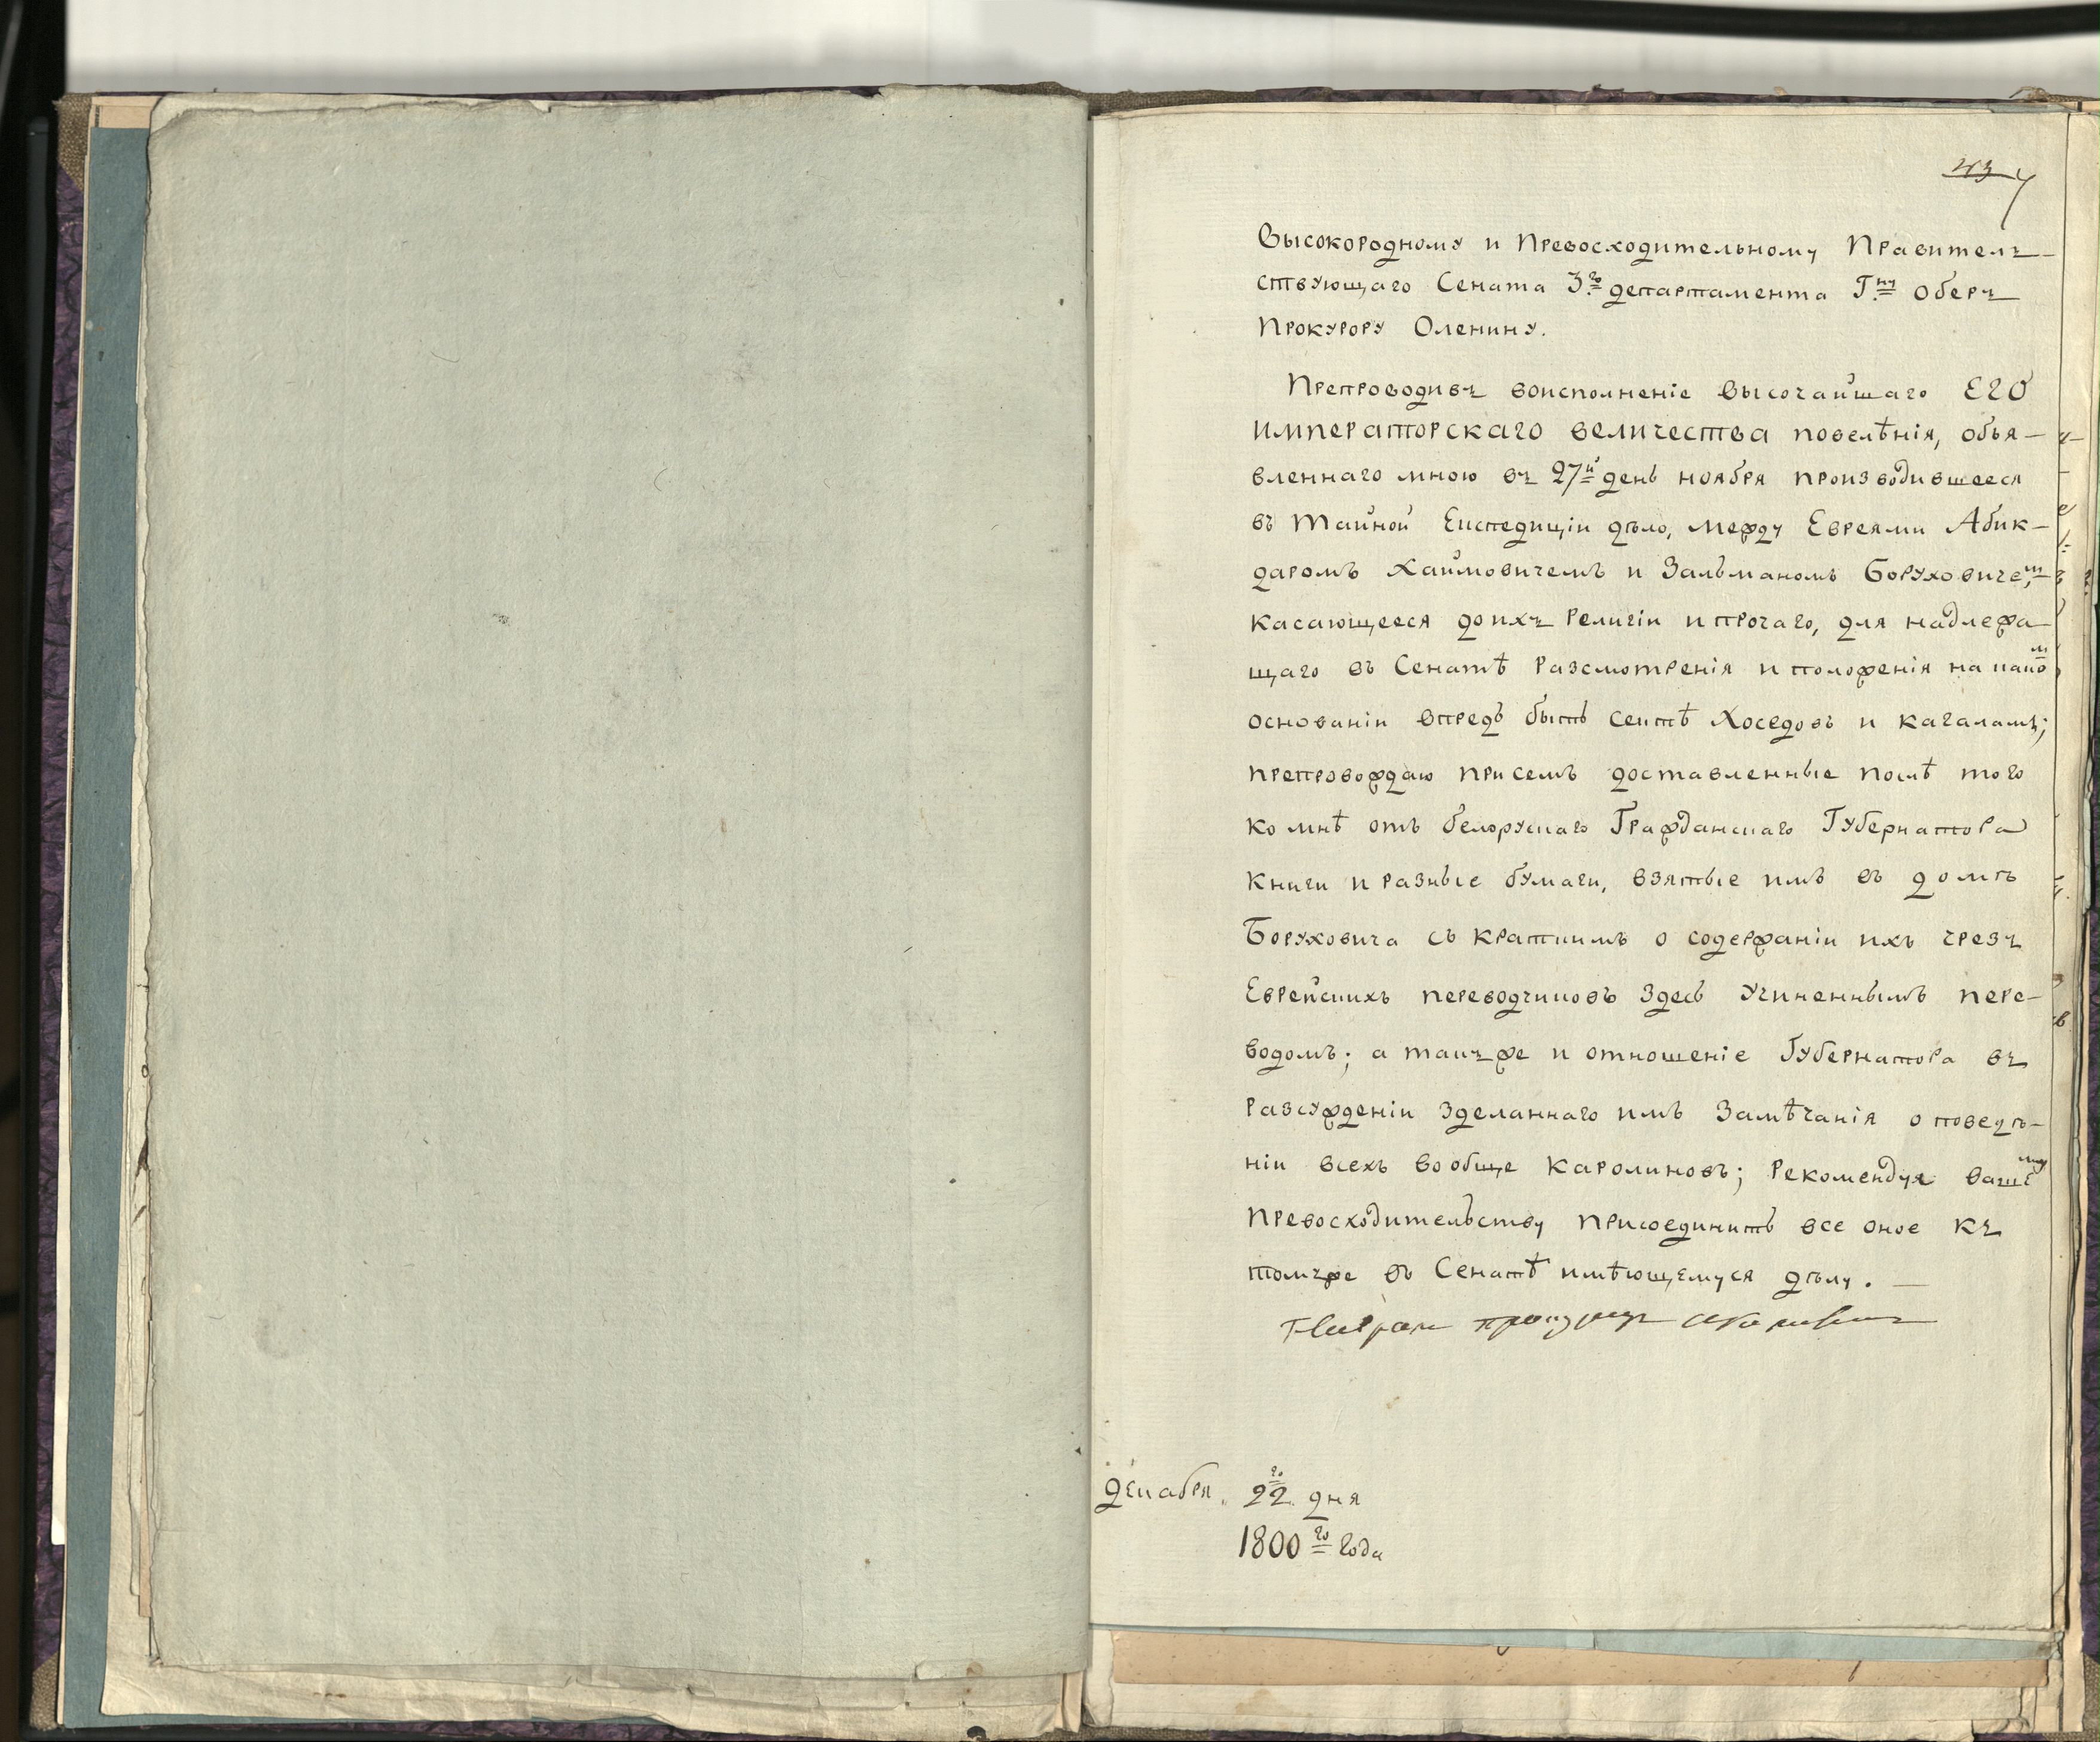 43 4
Высокородному и Превосходительному Правитель-
ствующаго Сената 3.го департамента Г.ну Оберъ
Прокурору Оленину.
Препроводивъ воисполненіе высочайшаго ЕГО
императорскаго величества повелѣнія, объя-
вленнаго мною въ 27й день ноября производившееся
въ Тайной Експедиціи дѣло, между Евреями Абик-
даромъ Хаимовичемъ и Зальманомъ Боруховичем,
касающееся доихъ Религіи ипрочаго, для надлежа-
щаго въ Сенатѣ Разсмотренія и положенія на како
основаніи впредь быть сектѣ Хоседовъ и кагаламъ;
препровождаю присемъ доставленные послѣ того
ко мнѣ отъ белорускаго Гражданскаго Губернатора
книги и разные бумаги, взятые имъ въ домѣ
Боруховича съ краткимъ о содержаніи ихъ чрезъ
Еврейскихъ переводчиковъ здесь учиненнымъ пере-
водомъ; а такъже и отношеніе Губернатора въ
Разсужденіи зделаннаго имъ Замѣчанія о поведѣ-
ніи всехъ вообще Каролиновъ; Рекомендуя вашему
Превосходительству присоединить все оное къ
томуже въ Сенатѣ имѣющемуся дѣлу. —
Генерал прокурор
декабря 22.го дня
1800го года